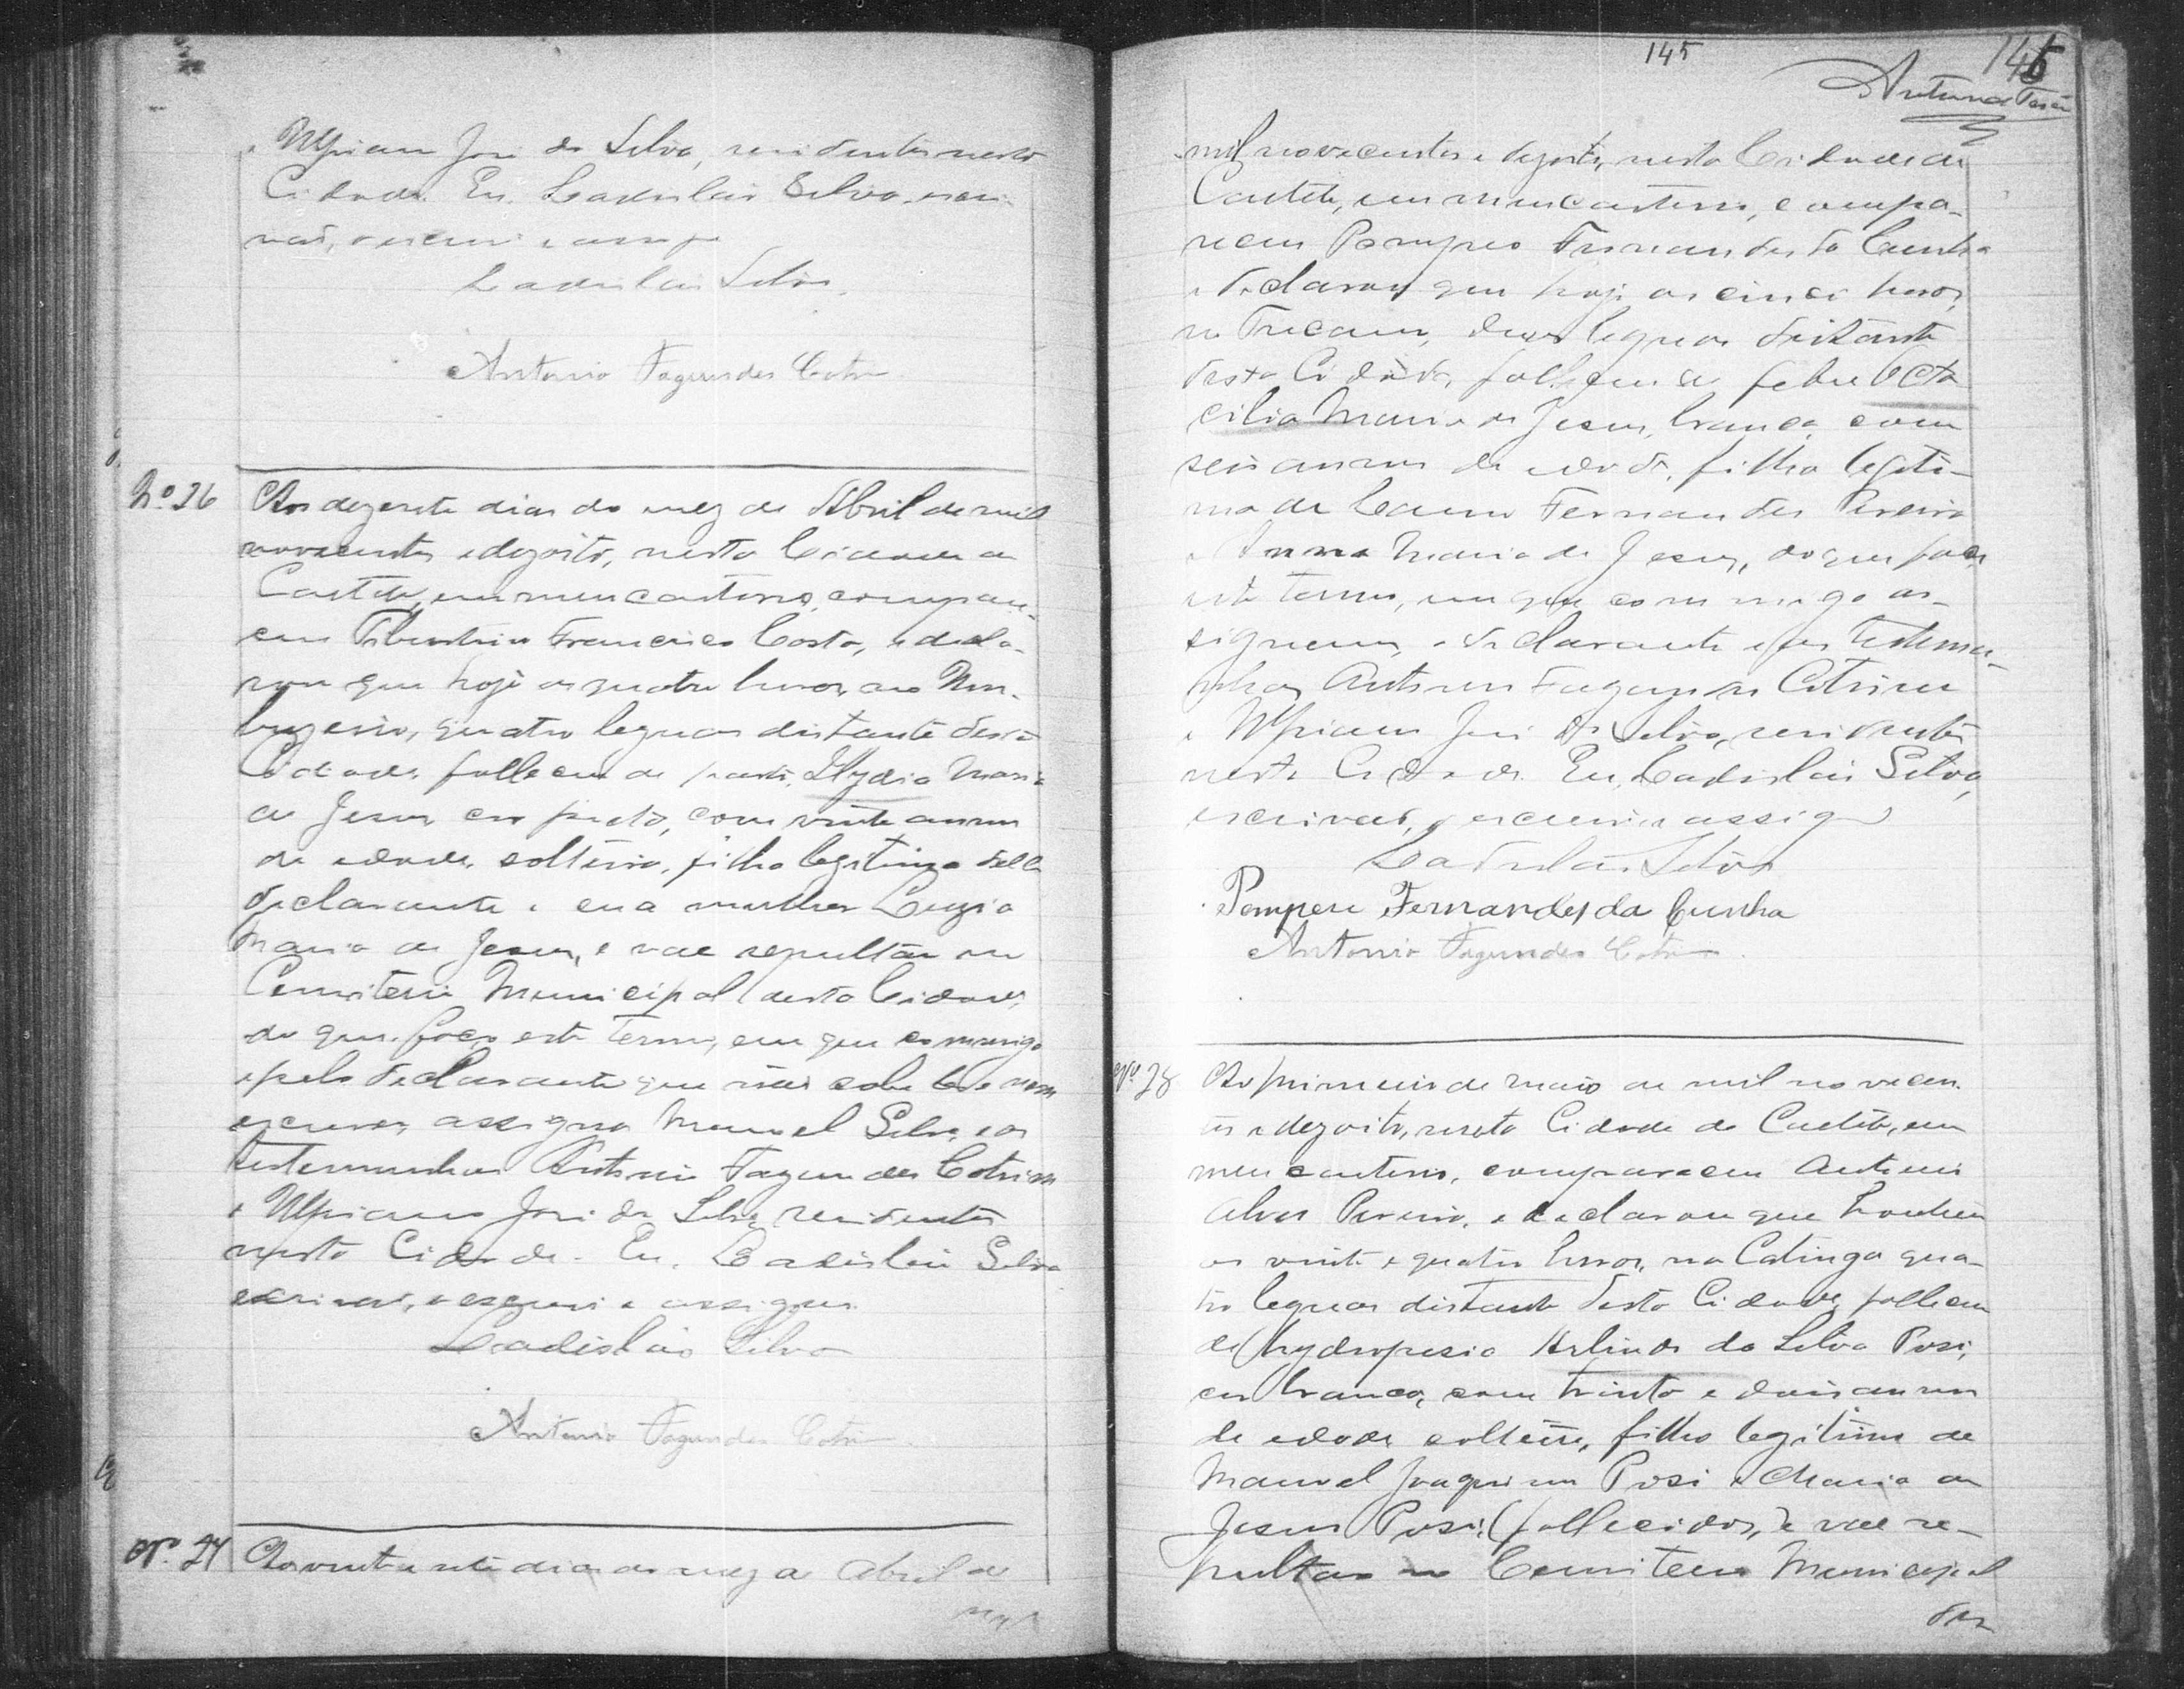 e Ulpiano José da Silva, residentes nesta
Cidade. Eu, Ladislau Silva, escri-
vão, o escrevi e assigno
Ladislau Silva.
Antonio Fagundes Cotrim
Nº 26
Aos dezesete dias do mez de Abril de mil
novecentos e dezoito, nesta Cidade de
Caeteté, em meu cartorio, compare-
ceu Francisco Costa, e decla-
rou que hoje as quatro horas, no Um-
buzeiro, quatro leguas distante desta
Cidade, falleceu de parto, Lydia Maria
de Jesus, cor preta, com vinte annos
de edade, solteira, filha legitima delle
declarante e sua mulher Luzia
Maria de Jesus, e vae sepultar no
Cemiterio Municipal desta Cidade,
do que faço este termo, em que commigo
e pelo declarante que não sabe ler e nem
escrever, assigna Manoel Silva, e as
testemunhas Antonio Fagundes Cotrim
e Ulpiano José da Silva, residentes
nesta Cidade. Eu, Ladislau Silva
escrivão, o escrevi e assigno.
Ladislau Silva
Antonio Fagundes Cotrim
Nº 27
Aos vinte e sete dias do mez de Abril de
mil
145
145
mil novecentos e dezoito, nesta Cidade de
Caeteté, em meu cartorio, compa-
receu Pompeo Fernandes da Cunha
e declarou que hoje as cinco horas,
no duas leguas distante
desta Cidade, falleceu de febre Octa
cilia Maria de Jesus, branca, com
seis annos de edade, filha legiti-
ma de Fernandes Pereira
e Anna Maria de Jesus, do que faço
este termo, em que commigo as-
signam, o declarante e as testemu-
nhas Antonio Fagundes Cotrim
e Ulpiano José da Silva, residentes
nesta Cidade. Eu, Ladislau Silva,
escrivão, o escrevi e assigno
Ladislau Silva
Pompeu Fernandes da Cunha
Antonio Fagundes Cotrim
Nº 28
Ao primeiro de maio de mil novecen-
tos e dezoito, nesta Cidade de Caeteté, em
meu cartorio, compareceu Antonio
Alves Pereira, e declarou que hontem
as vinte e quatro horas, na Catinga qua-
tro leguas distante desta Cidade, falleceu
de hydropesia Arlindo da Silva Posi,
cor branca, com trinta e dois annos
de edade, solteiro, filho legitimo de
Manoel Joaquim Posi e Maria de
Jesus Posi, (fallecidos,) e vae se-
pultar no Cemiterio Municipal
des